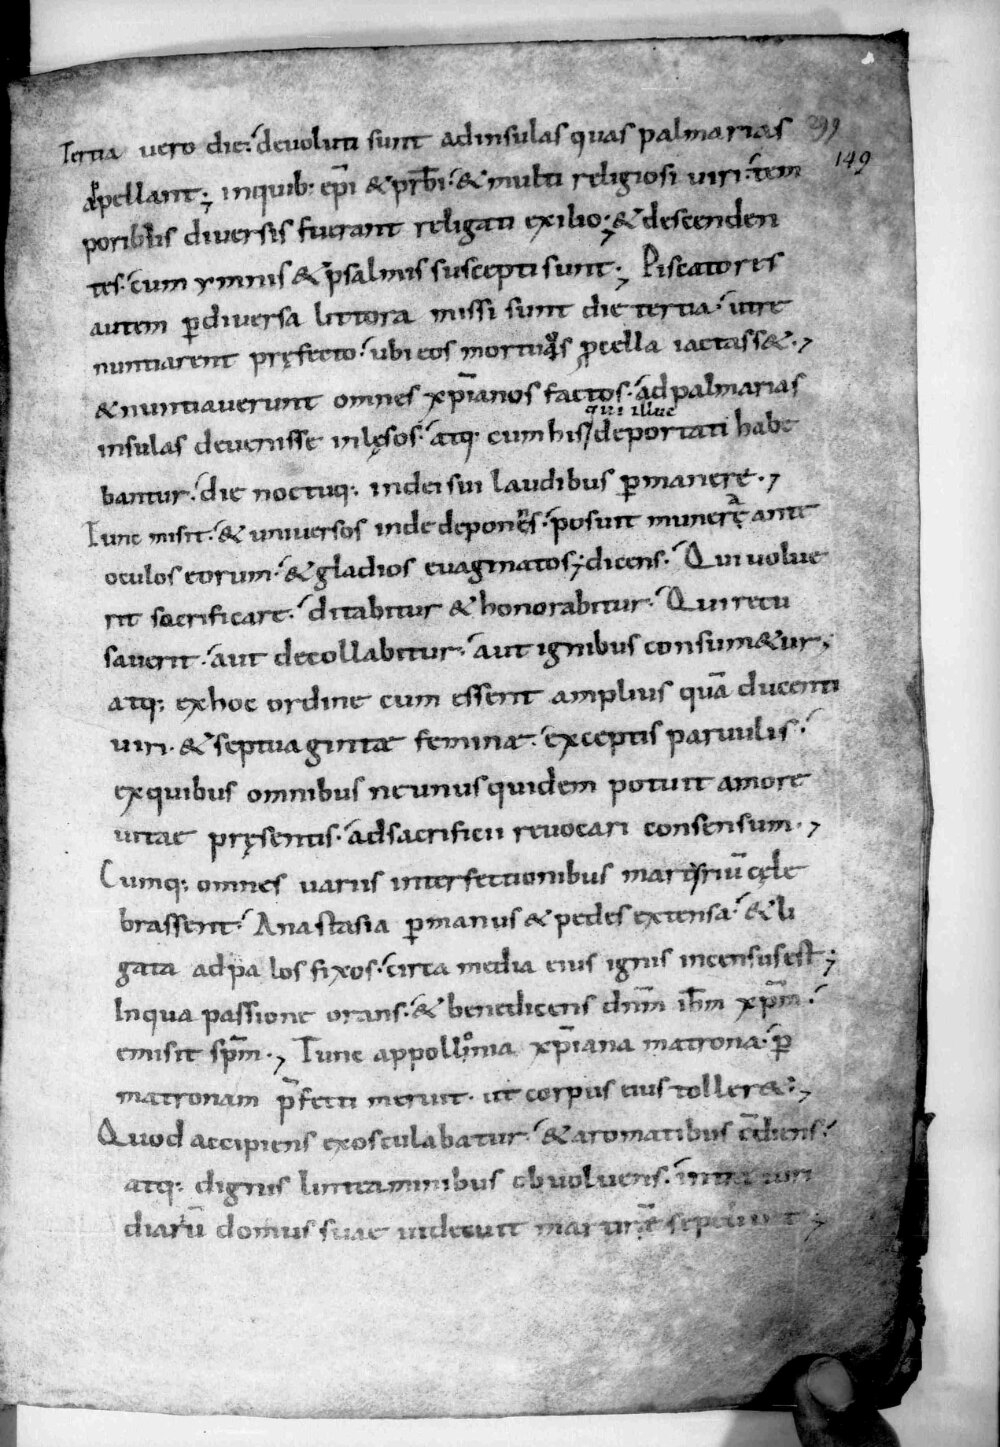 299
149
Tertia vero die. devoluti sunt ad insulas quas palmarias
appellant; inquib; ep̄i & pr̄bi. & multi religiosi viri. tem
poribus diversis fuerant religati exilio; & descenden
tes. cum ymnis & psalmis suscepti sunt; Piscatores
autem ꝑ diversa littora missi sunt die tertia. ut re
nuntiarent pręfecto. ubi eos mortuos procella iactass&.,
& nuntiaverunt omnes xp̄ianos factos. ad palmarias
insulas devenisse inlęsos. atq; cum his qui illuc deportati habe
bantur. die noctuq; in dei sui laudibus ꝑmanere.,
Tunc misit. & universos inde deponens. posuit munera ante
oculos eorum. & gladios evaginatos; dicens. Qui volue
rit sacrificare. ditabitur & honorabitur. Qui recu
saverit. aut decollabitur. aut ignibus consum&ur;
atq; ex hoc ordine cum essent amplius quā ducenti
viri. & septuaginta feminæ. exceptis parvulis.
ex quibus omnibus ne unus quidem potuit amore
vitae pręsentis. ad sacrificii revocari consensum.,
Cumq; omnes variis interfectionibus martyriū cęle
brassent. Anastasia ꝑ manus & pedes extensa. & li
gata ad palos fixos. circa media eius ignis incensus est;
In qua passione orans. & benedicens dn̄m ih̄m xp̄m.
emisit sp̄m., Tunc appollonia xp̄iana matrona. ꝑ
matronam p̄fecti meruit. ut corpus eius toller&.,
Quod accipiens exosculabatur. & aromatibus c̄diens.
atq; dignis lintiaminibus obvolvens. intra viri
diariū domus suae ut decuit martyrē sepelivit;